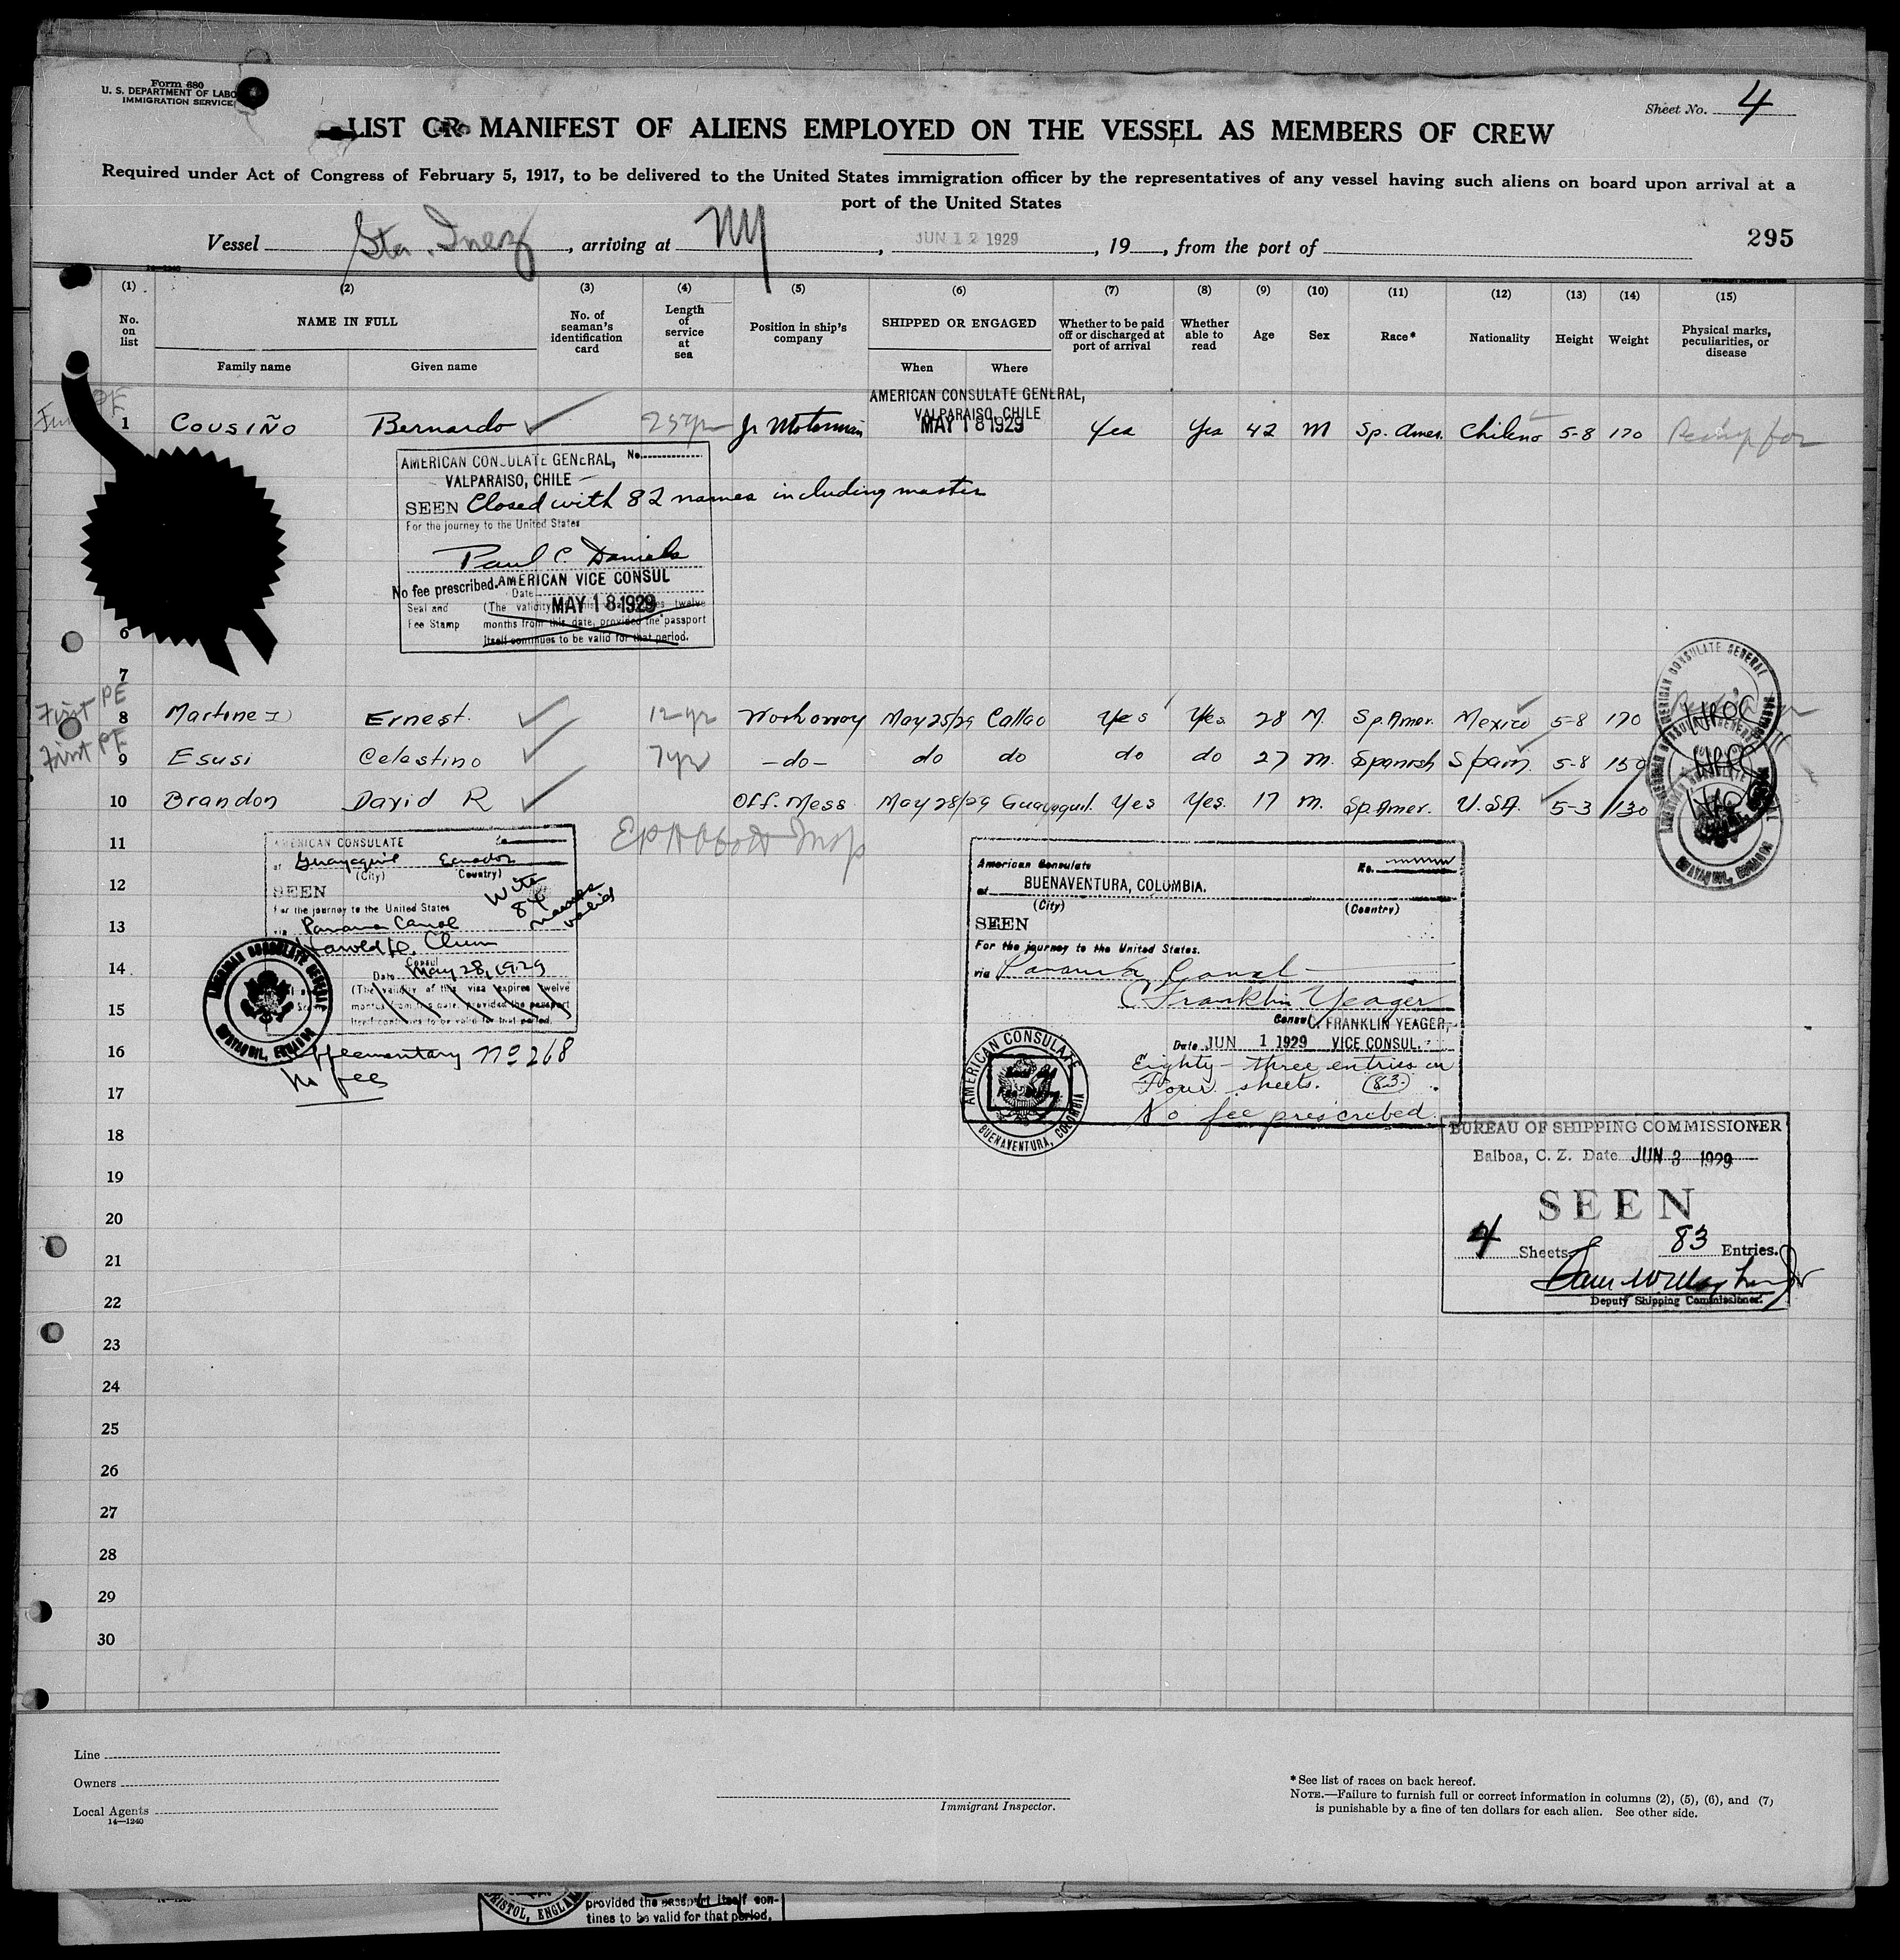 Form 680
U. S. DEPARTMENT OF LABO
IMMIGRATION SERVICE
Sheet No. 4
LIST OR MANIFEST OF ALIENS EMPLOYED ON THE VESSEL AS MEMBERS OF CREW
Required under Act of Congress of February 5, 1917, to be delivered to the United States immigration officer by the representatives of any vessel having such aliens on board upon arrival at a
port of the United States
Vessel Sta. Inez, arriving at NY, JUN 12 1929, 19, from the port of
295
(1) (2) (3) (4) (5) (6) (7) (8) (9) (10) (11) (12) (13) (14) (15)
No. on list
NAME IN FULL
Family name Given name
No. of seaman's identification card
Length of service at sea
Position in ship's company
SHIPPED OR ENGAGED
When Where
Whether to be paid off or discharged at port of arrival
Whether able to read
Age
Sex
Race*
Nationality
Height
Weight
Physical marks, peculiarities, or disease
AMERICAN CONSULATE GENERAL,
VALPARAISO, CHILE
PE
1 Cousiño Bernardo 25yr Jr Motorman MAY 18 1929 Yes Yes 42 M Sp. Amer. Chileno 5-8 170
AMERICAN CONSULATE GENERAL, No.
VALPARAISO, CHILE
SEEN Closed with 82 names including master
For the journey to the United States
Paul C. Daniels
No fee prescribed. AMERICAN VICE CONSUL
Date MAY 18 1929
Seal and Fee Stamp
(The validity of this visa expires twelve
months from this date, provided the passport
itself continues to be valid for that period.
6
7
First PE
8 Martinez Ernest. 12yr Workaway May 25/29 Callao Yes Yes. 28 M. Sp. Amer. Mexico 5-8 170
First PE
9 Esusi Celestino 7yr -do- do do do do 27 m. Spanish Spain. 5-8 150
10 Brandon David R Off. Mess May 28/29 Guayaquil. Yes Yes. 17 m. Sp. Amer. U.S.A. 5-3 130
AMERICAN CONSULATE GENERAL
GUAYAQUIL, ECUADOR
11
12
13
14
15
16
17
18
19
20
21
22
23
24
25
26
27
28
29
30
AMERICAN CONSULATE
at Guayaquil Ecuador
(City) Country)
SEEN
with 84 names valid
For the journey to the United States
via Panama Canal
Harold D. Clum
Consul
Date May 28, 1929
(The validity of this visa expires twelve
months from this date, provided the passport
itself continues to be valid for that period.
AMERICAN CONSULATE GENERAL
GUAYAQUIL, ECUADOR
Supplementary No 268
No fee
American Consulate No.
at BUENAVENTURA, COLOMBIA.
(City) (Country)
SEEN
For the journey to the United States.
via Panama Canal
C Franklin Yeager
Consul C. FRANKLIN YEAGER,
Date JUN 1 1929 VICE CONSUL.
Eighty-three entries on
Four sheets. (83)
No fee prescribed.
AMERICAN CONSULATE
BUENAVENTURA, COLOMBIA
BUREAU OF SHIPPING COMMISSIONER
Balboa, C. Z. Date JUN 3 1929
SEEN
4 Sheets 83 Entries.
Deputy Shipping Commissioner.
Line
Owners
Local Agents
14—1240
Immigrant Inspector.
*See list of races on back hereof.
NOTE.—Failure to furnish full or correct information in columns (2), (5), (6), and (7)
is punishable by a fine of ten dollars for each alien. See other side.
BRISTOL, ENGLAND
provided the passport itself con-
tines to be valid for that period.